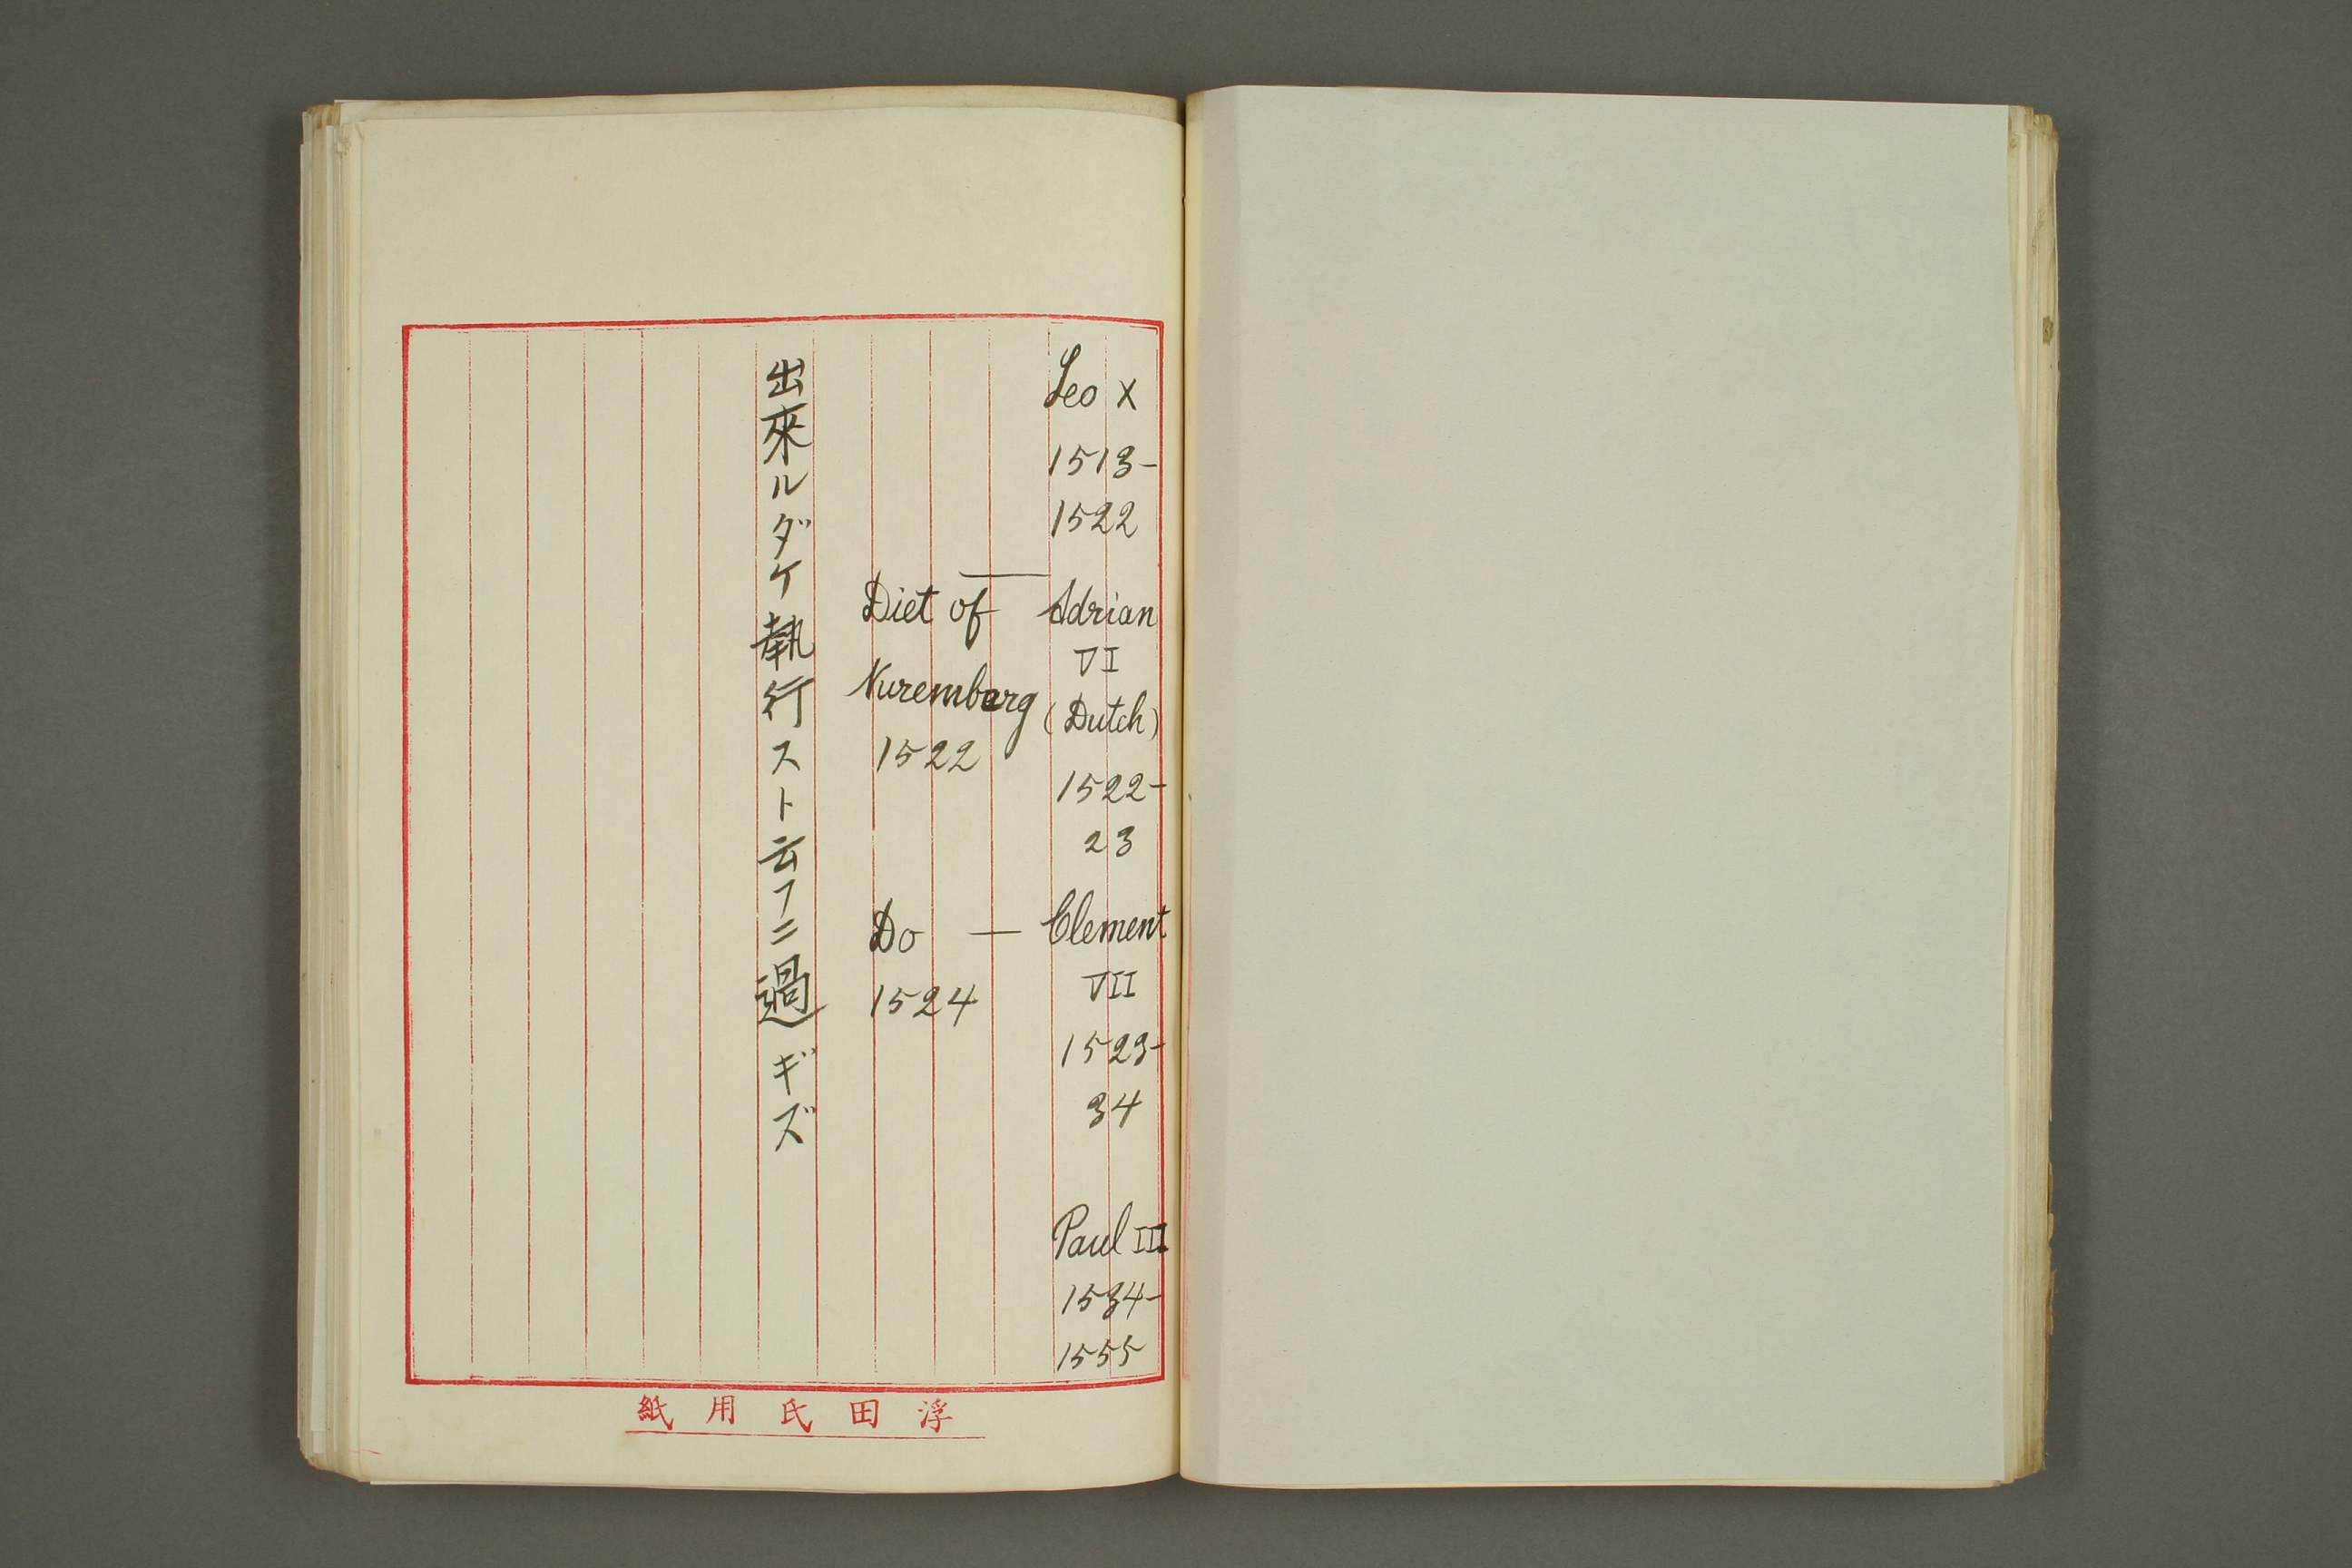 Leo X
1513-
1522
Adrian
VI
(Dutch)
1522-
23
Clement
VII
1523-
34
Paul III
1534-
1555
Diet of —
Nuremberg
1522
Do —
1524
出來ルダケ執行スト云フニ過ギズ
浮田氏用紙